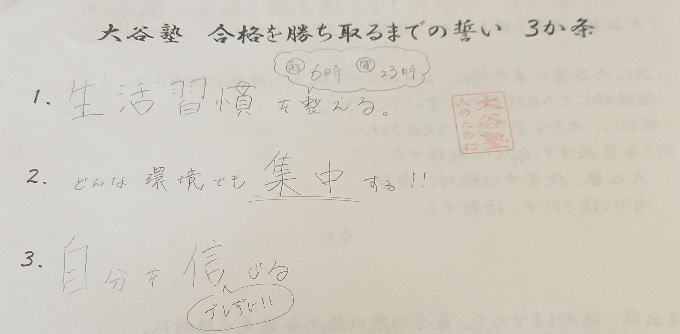 大谷塾 合格を勝ち取るまでの誓い 3か条
起 6時 寝 23時
1. 生活習慣を整える。
大谷塾
人のために
2. どんな環境でも集中する!!
3. 自分を信じる
ブレずに!!